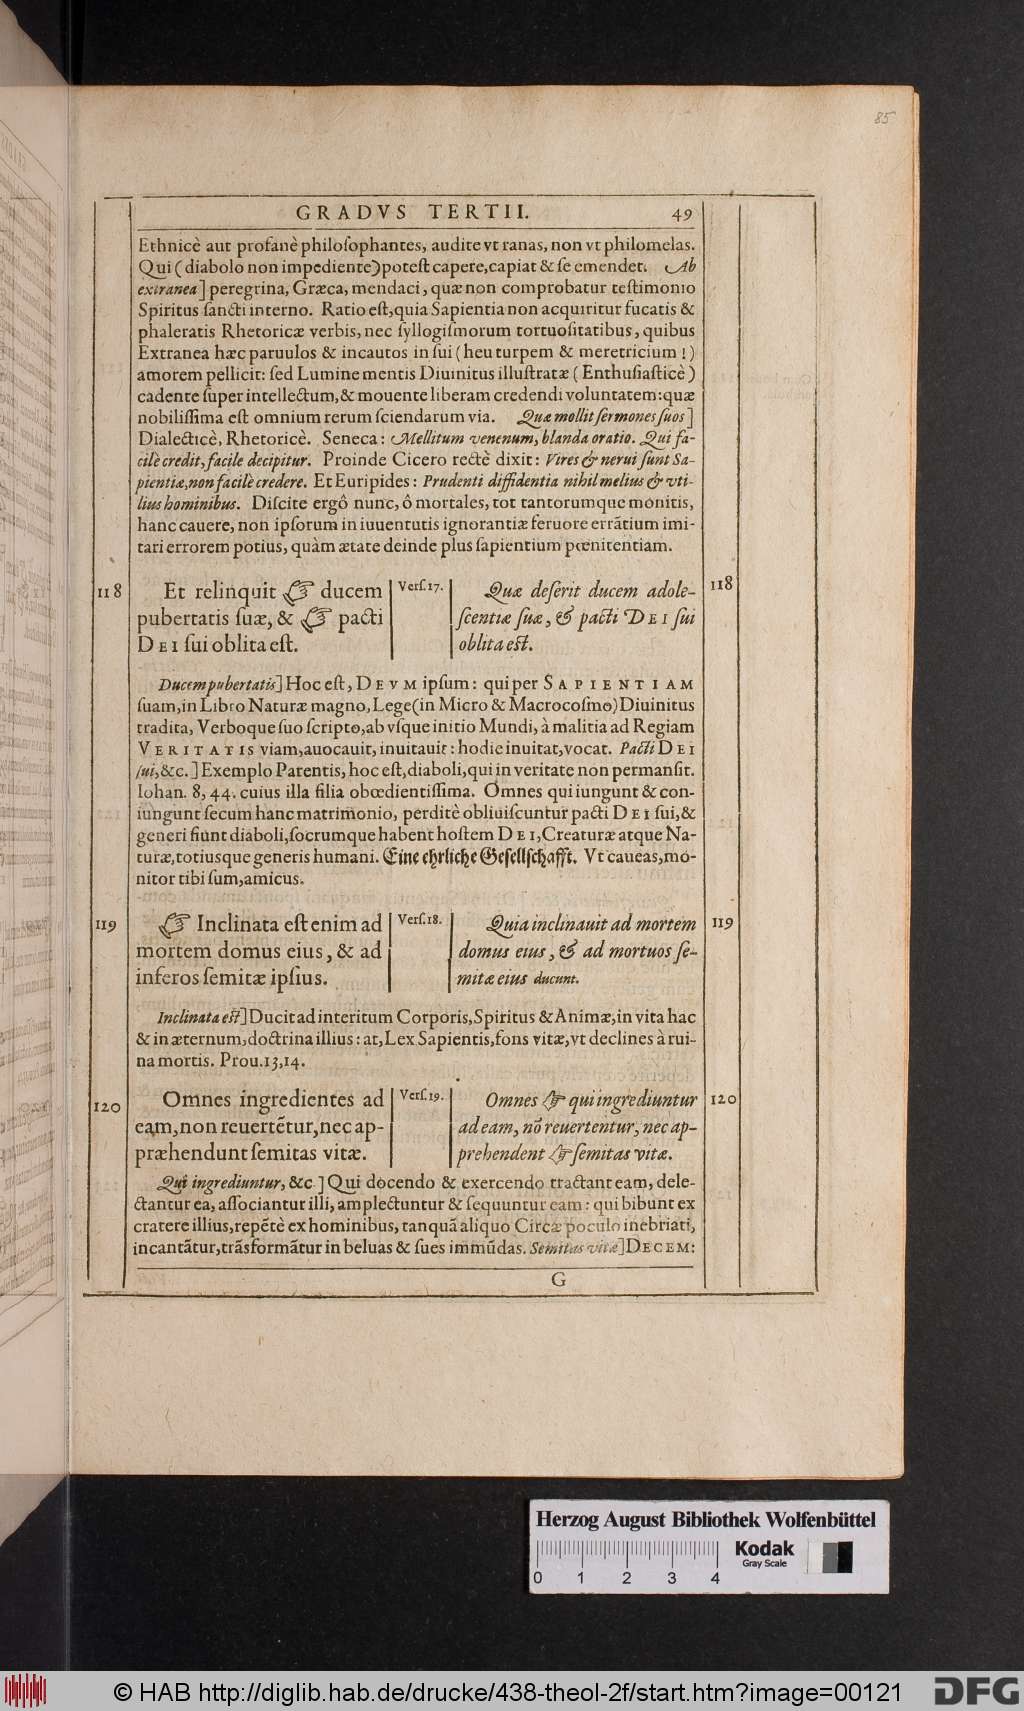 85
GRADVS TERTII. 49
Ethnicè aut profanè philoſophantes, audite vt ranas, non vt philomelas.
Qui (diabolo non impediente) poteſt capere, capiat & ſe emendet. Ab
extranea] peregrina, Græca, mendaci, quæ non comprobatur teſtimonio
Spiritus ſancti interno. Ratio eſt, quia Sapientia non acquiritur fucatis &
phaleratis Rhetoricæ verbis, nec ſyllogiſmorum tortuoſitatibus, quibus
Extranea hæc paruulos & incautos in ſui (heu turpem & meretricium!)
amorem pellicit: ſed Lumine mentis Diuinitus illuſtratæ (Enthuſiaſticè)
cadente ſuper intellectum, & mouente liberam credendi voluntatem: quæ
nobiliſſima eſt omnium rerum ſciendarum via. Quæ mollit ſermones ſuos]
Dialecticè, Rhetoricè. Seneca: Mellitum venenum, blanda oratio. Qui fa-
cilè credit, facile decipitur. Proinde Cicero rectè dixit: Vires & nerui ſunt Sa-
pientiæ, non facilè credere. Et Euripides: Prudenti diffidentia nihil melius & vti-
lius hominibus. Diſcite ergô nunc, ô mortales, tot tantorumque monitis,
hanc cauere, non ipſorum in iuuentutis ignorantiæ feruore errãtium imi-
tari errorem potius, quàm ætate deinde plus ſapientium pœnitentiam.
118 Et relinquit ☞ ducem Verſ. 17. Quæ deſerit ducem adole- 118
pubertatis ſuæ, & ☞ pacti ſcentiæ ſuæ, & pacti DEI ſui
DEI ſui oblita eſt. oblita eſt.
Ducem pubertatis] Hoc eſt, DEVM ipſum: qui per SAPIENTIAM
ſuam, in Libro Naturæ magno, Lege (in Micro & Macrocoſmo) Diuinitus
tradita, Verboque ſuo ſcripto, ab vſque initio Mundi, à malitia ad Regiam
VERITATIS viam, auocauit, inuitauit: hodie inuitat, vocat. Pacti DEI
ſui, &c.] Exemplo Parentis, hoc eſt, diaboli, qui in veritate non permanſit.
Iohan. 8, 44. cuius illa filia obœdientiſſima. Omnes qui iungunt & con-
iungunt ſecum hanc matrimonio, perditè obliuiſcuntur pacti DEI ſui, &
generi fiunt diaboli, ſocrumque habent hoſtem DEI, Creaturæ atque Na-
turæ, totiusque generis humani. Eine ehrliche Geſellſchafft. Vt caueas, mo-
nitor tibi ſum, amicus.
119 ☞ Inclinata eſt enim ad Verſ. 18. Quia inclinauit ad mortem 119
mortem domus eius, & ad domus eius, & ad mortuos ſe-
inferos ſemitæ ipſius. mitæ eius ducunt.
Inclinata eſt] Ducit ad interitum Corporis, Spiritus & Animæ, in vita hac
& in æternum, doctrina illius: at, Lex Sapientis, fons vitæ, vt declines à rui-
na mortis. Prou. 13, 14.
120 Omnes ingredientes ad Verſ. 19. Omnes ☞ qui ingrediuntur 120
eam, non reuertẽtur, nec ap- ad eam, nõ reuertentur, nec ap-
præhendunt ſemitas vitæ. prehendent ☞ ſemitas vitæ.
Qui ingrediuntur, &c.] Qui docendo & exercendo tractant eam, dele-
ctantur ea, aſſociantur illi, amplectuntur & ſequuntur eam: qui bibunt ex
cratere illius, repẽtè ex hominibus, tanquã aliquo Circæ poculo inebriati,
incantãtur, trãsformãtur in beluas & ſues immũdas. Semitas vitæ] DECEM:
G
Herzog August Bibliothek Wolfenbüttel
Kodak
Gray Scale
0 1 2 3 4
© HAB http://diglib.hab.de/drucke/438-theol-2f/start.htm?image=00121
DFG